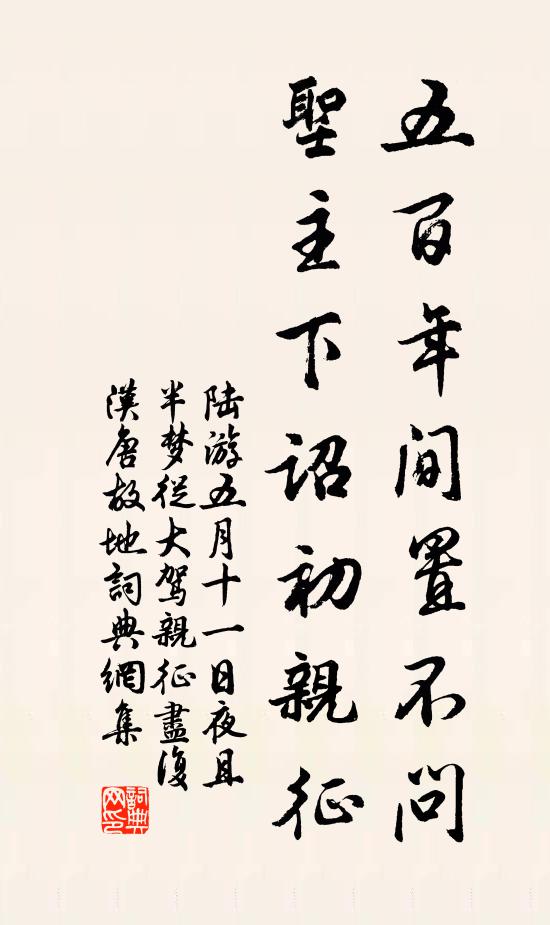 五百年間置不問
聖主下詔初親征
陸游五月十一日夜且
半梦從大駕親征盡復
漢唐故地詞典網集
詞典
网印